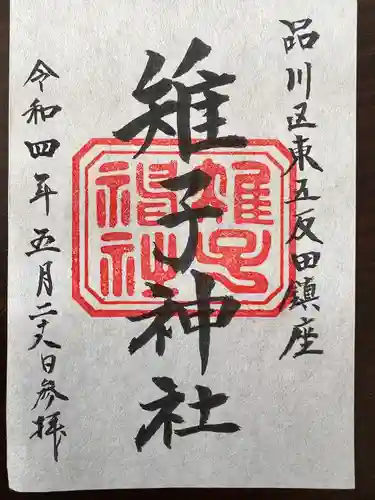 品川区東五反田鎮座
雉子神社
雉子神社
令和四年五月二十八日参拝